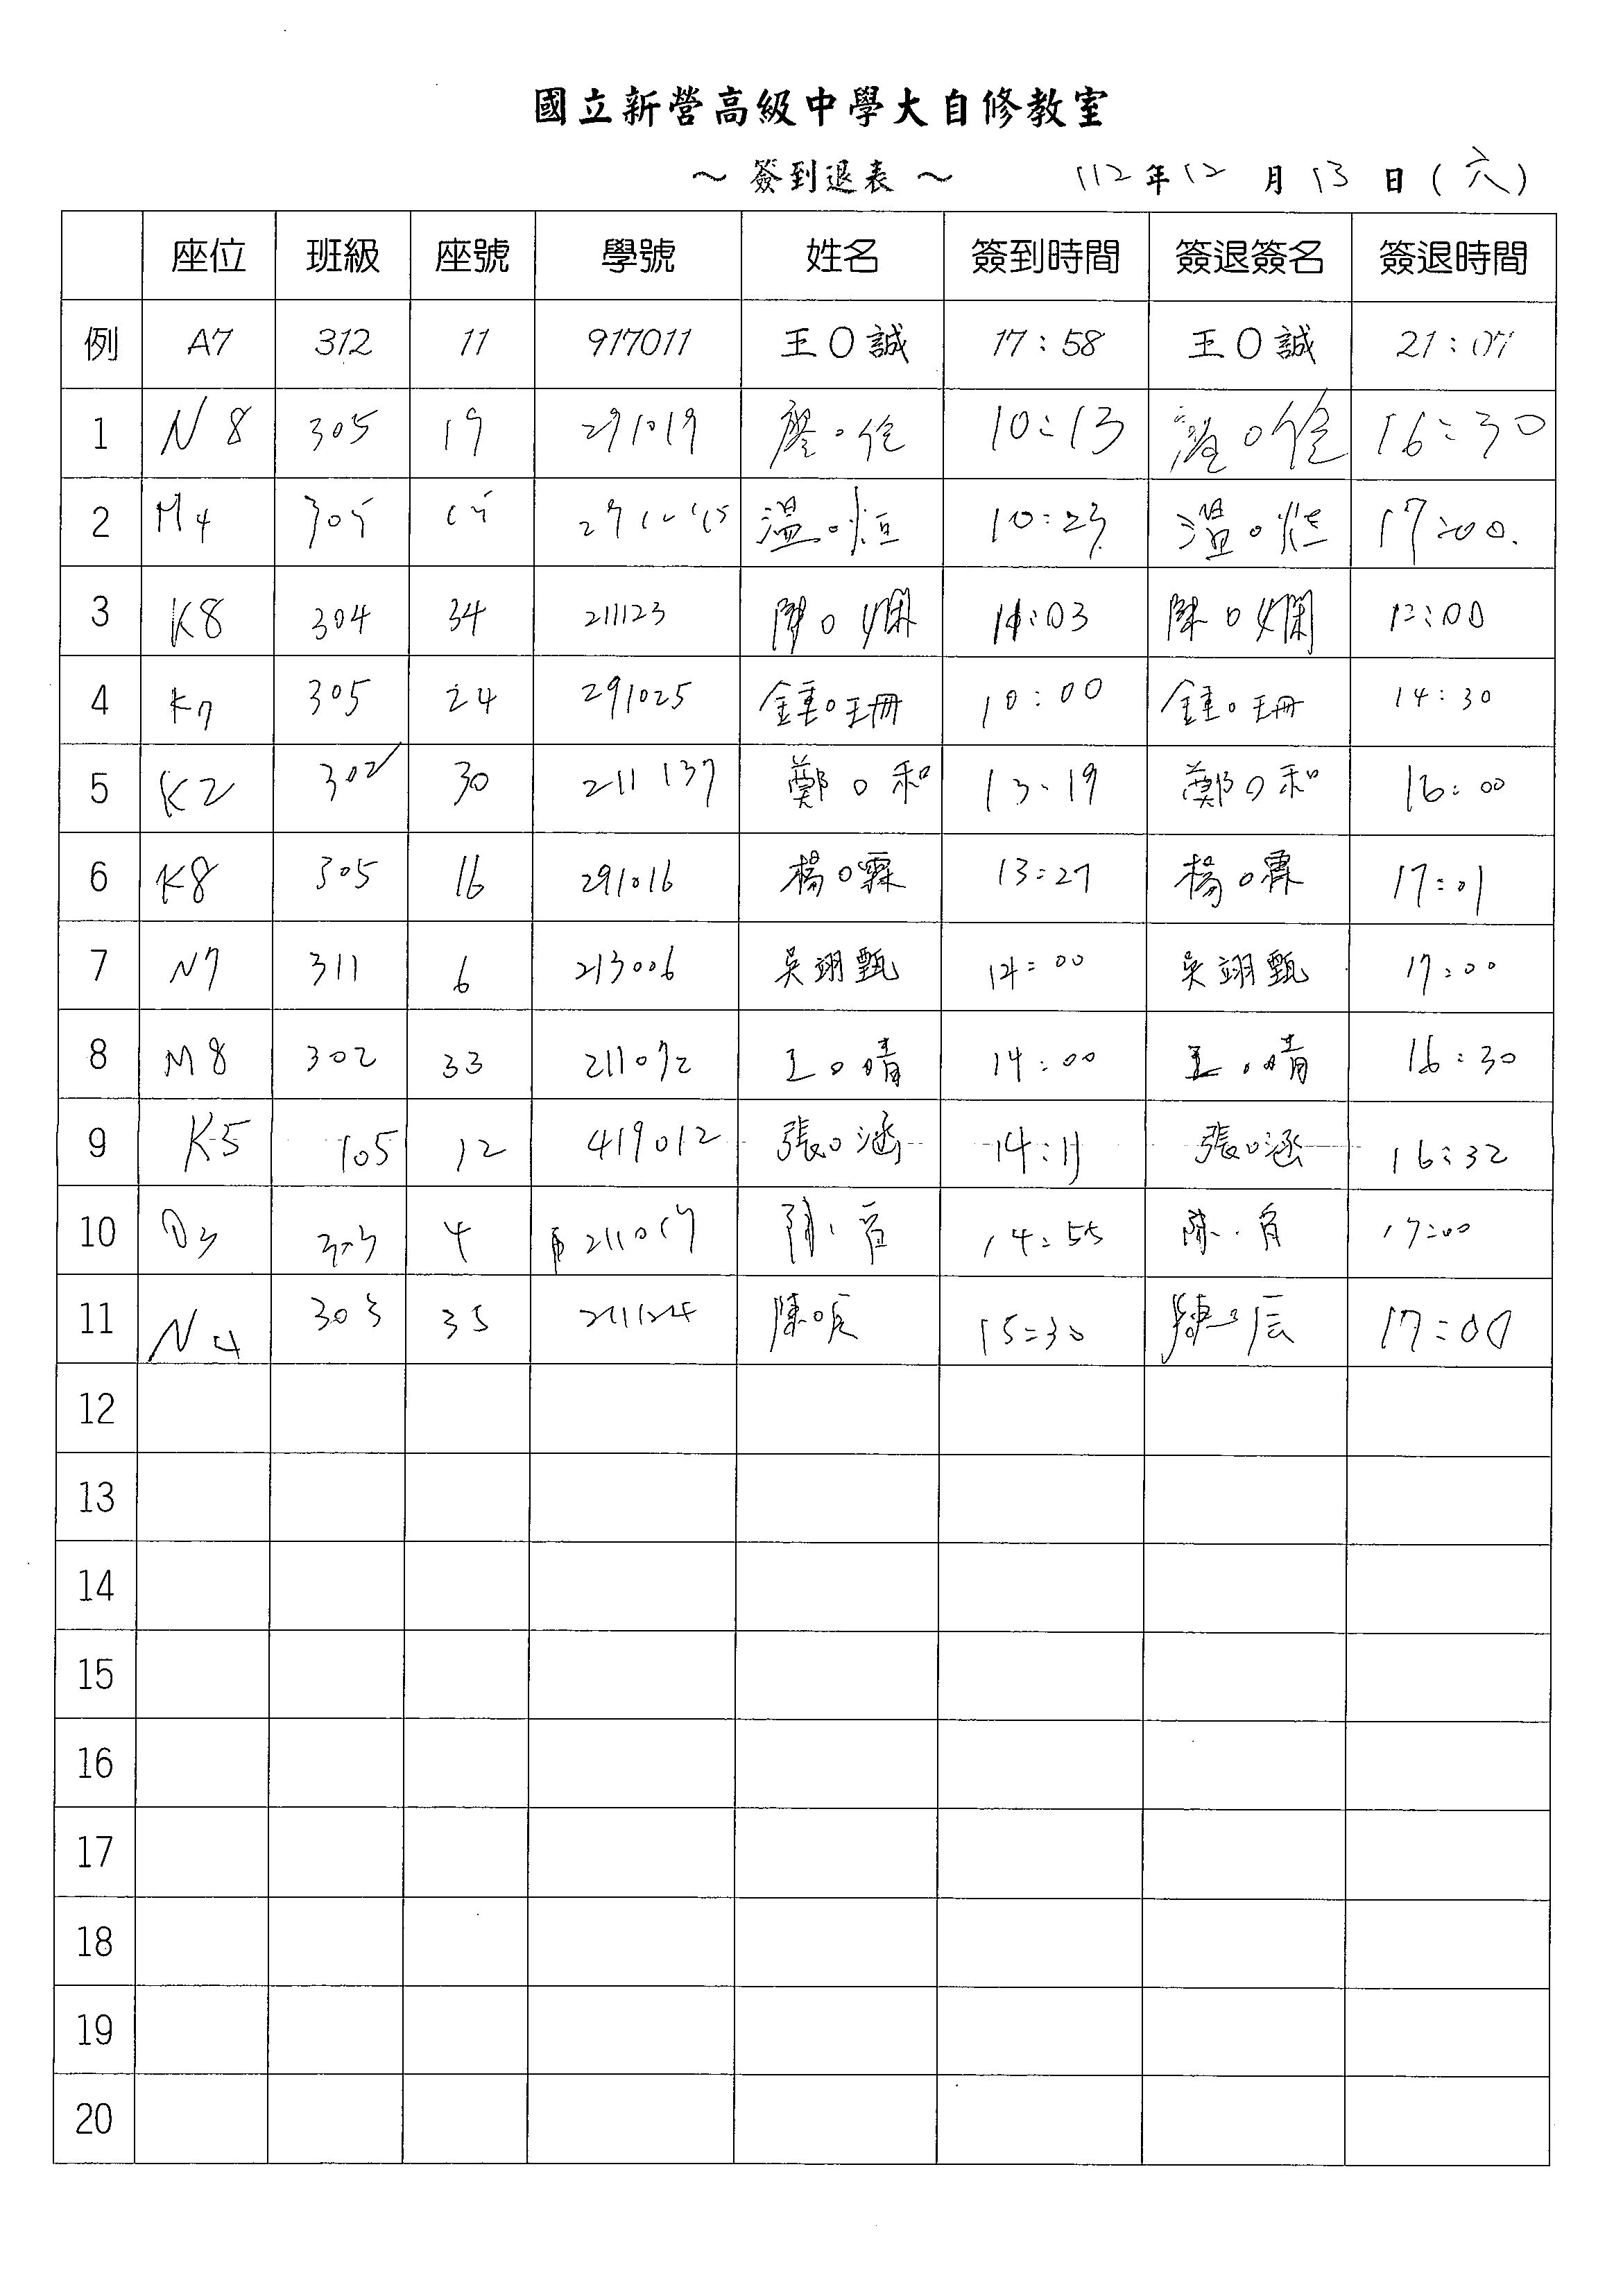 國立新營高級中學大自修教室
～ 簽到退表 ～ 112年12月13日(六)
座位 班級 座號 學號 姓名 簽到時間 簽退簽名 簽退時間
例 A7 312 11 917011 王O誠 17:58 王O誠 21:07
1 N8 305 19 291019 廖O佗 10:13 16:30
2 M4 305 15 溫O烜 10:23 溫O烜 17:00.
3 K8 304 34 211123 陳O嫻 11:03 陳O嫻 12:00
4 K7 305 24 291025 鍾O珊 10:00 鍾O珊 14:30
5 K2 302 30 211137 鄭O和 13:19 鄭O和 16:00
6 K8 305 16 291016 楊O霖 13:27 楊O霖 17:01
7 N7 311 6 213006 吳翊甄 14:00 吳翊甄 17:00
8 M8 302 33 211072 王O晴 14:00 王O晴 16:30
9 K5 105 12 419012 張O涵 14:11 張O涵 16:32
10 D3 303 4 211017 14:55 17:00
11 N4 303 35 211124 陳O辰 15:30 陳O辰 17:00
12
13
14
15
16
17
18
19
20